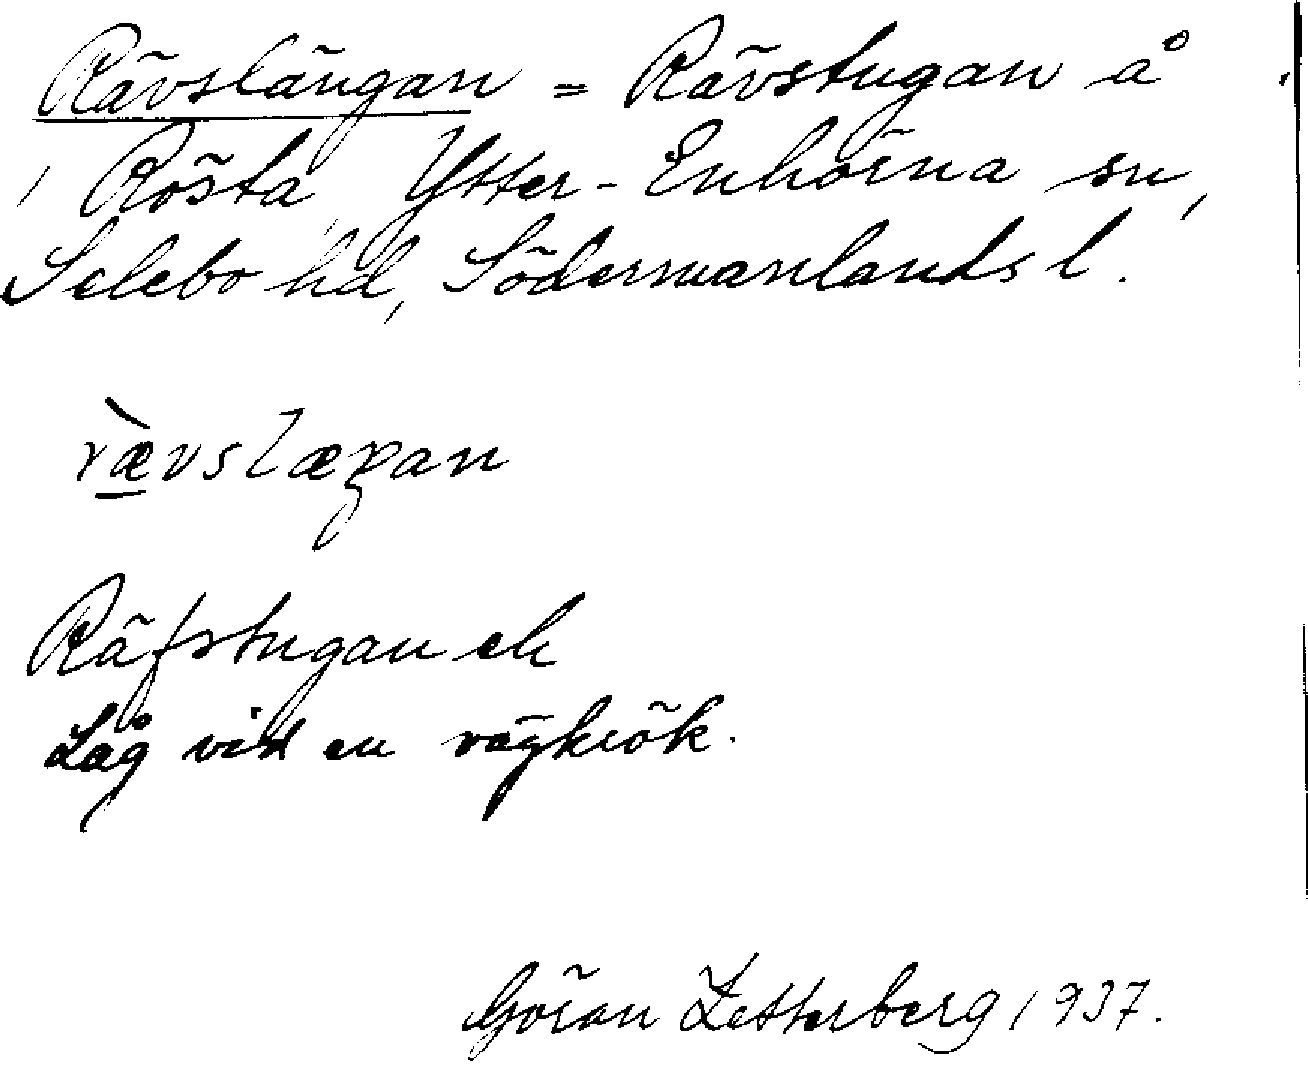 Rävslängan = Rävstugan å
Rösta, Ytter-Enhörna sn,
Selebo hd, Södermanlands l.
rævslæŋan
Räfstugan ek
Låg vid en vägkrök.
Göran Zetterberg 1937.